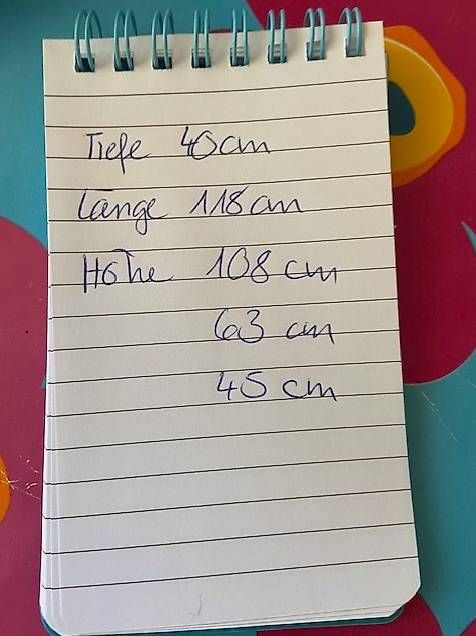 Tiefe 40cm
Länge 118cm
Höhe 108 cm
63 cm
45 cm